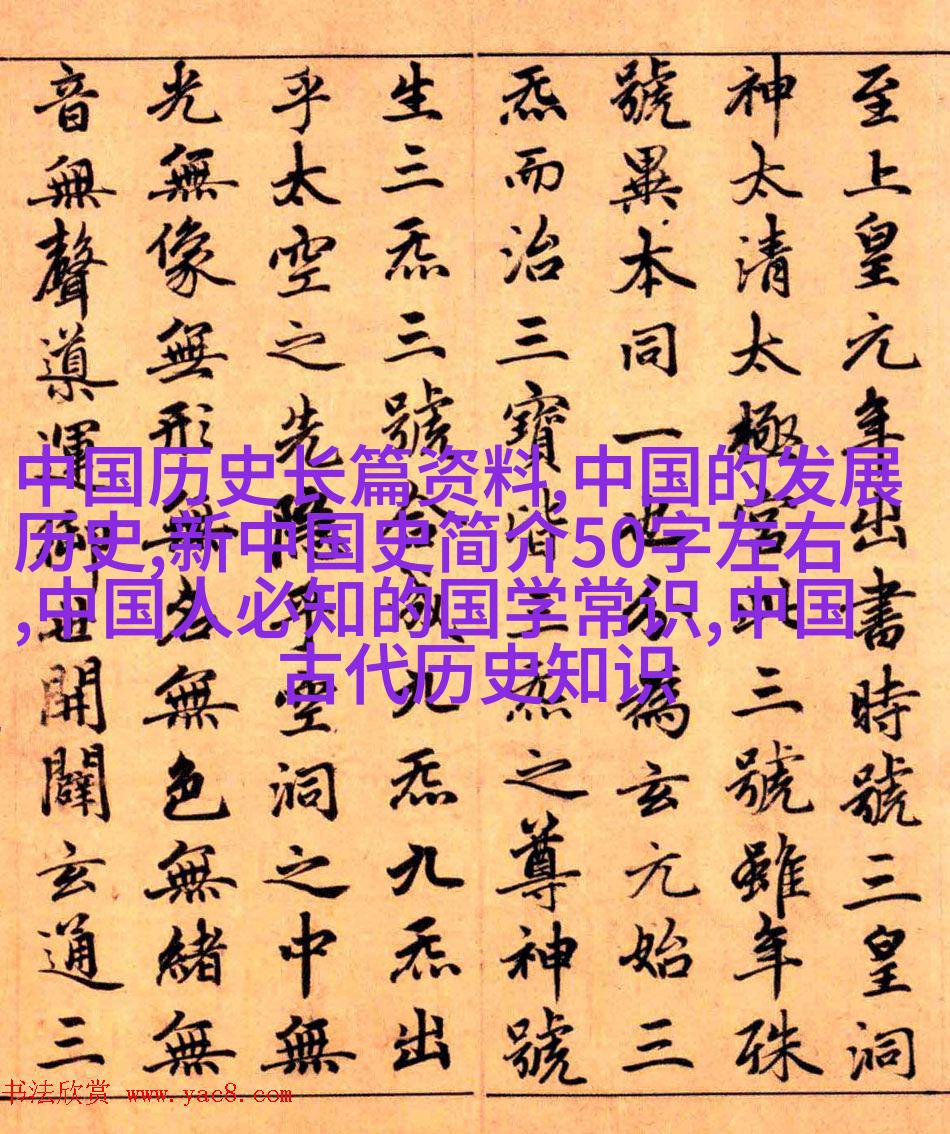 至上皇元年出書時號三皇洞
神太清太極宮此三號雖年殊
號異本同一也分為玄元始三
炁而治三寶皆三炁之尊神號
生三炁三號合成九炁九炁出
乎太空之先隱乎空洞之中無
光無像無形無名無色無緒無
音無聲導運御世開闢玄通三
中国历史长篇资料,中国的发展
历史,新中国史简介50字左右
,中国人必知的国学常识,中国
古代历史知识
书法欣赏 www.yac8.com